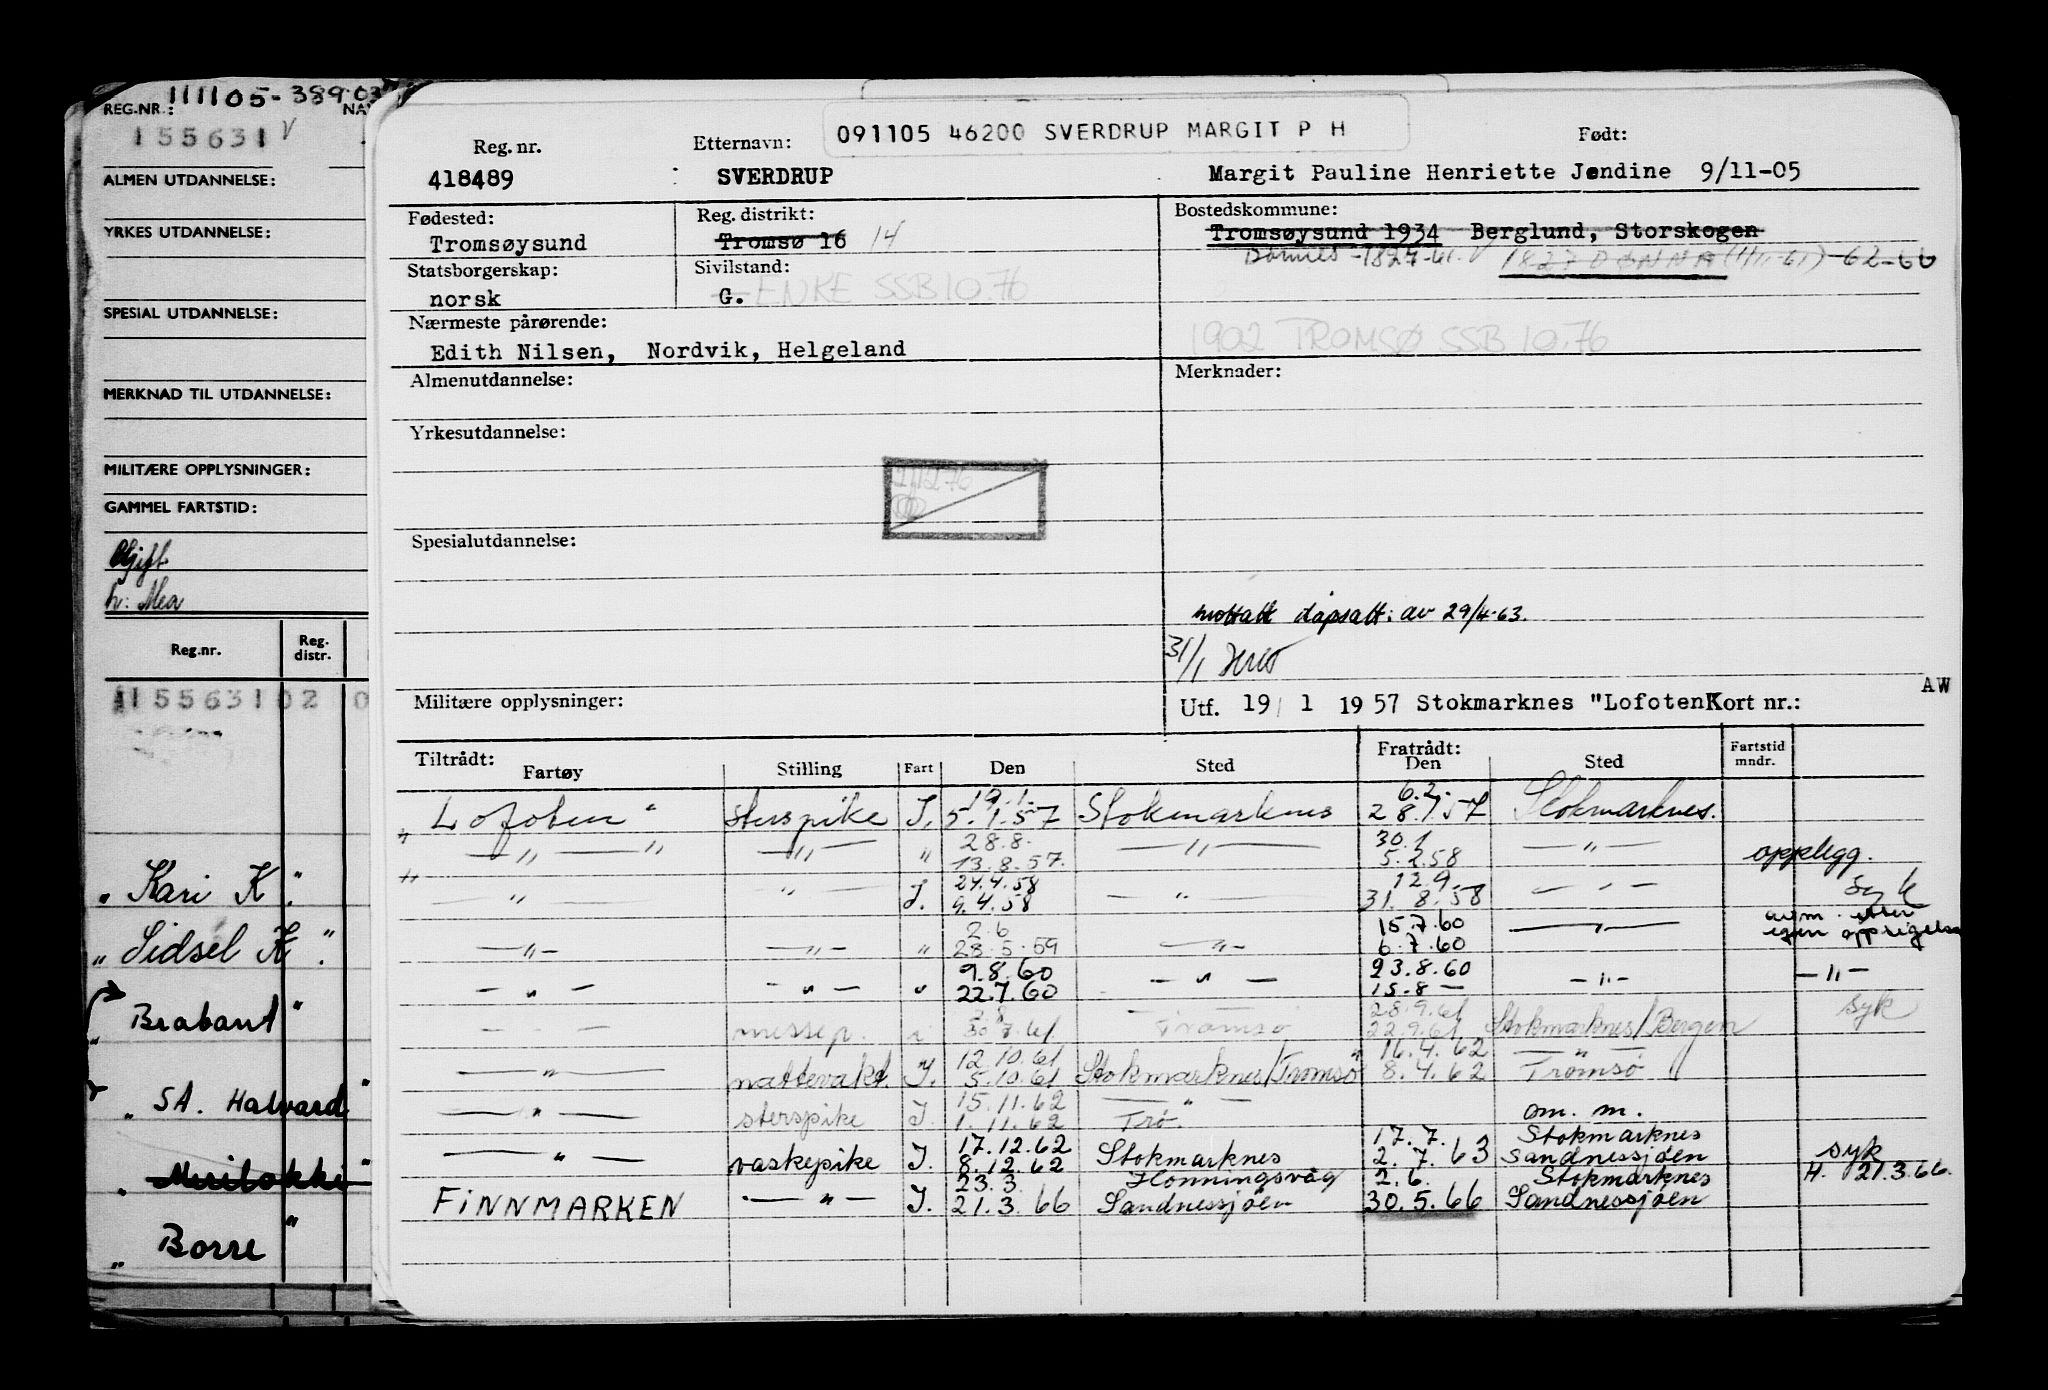 REG.NR.: 111105-389.03 NA
155631 V
ALMEN UTDANNELSE:
YRKES UTDANNELSE:
SPESIAL UTDANNELSE:
MERKNAD TIL UTDANNELSE:
MILITÆRE OPPLYSNINGER:
GAMMEL FARTSTID:
Gift
h: Mea
Reg.nr. Reg. distr.
155631 02 0
" Kari K "
" Sidsel K "
" Brabant "
" SA. Halvard "
" Borre "
091105 46200 SVERDRUP MARGIT P H
Reg. nr. Etternavn: Født:
418489 SVERDRUP Margit Pauline Henriette Jondine 9/11-05
Fødested: Reg. distrikt: Bostedskommune:
Tromsøysund Tromsø 16 14 Tromsøysund 1934 Berglund, Storskogen
Dønnes -1827-61. V 1827 DØNNA (1/11-61) -62-66
Statsborgerskap: Sivilstand:
norsk G. ENKE SSB 10.76
Nærmeste pårørende:
Edith Nilsen, Nordvik, Helgeland 1902 TROMSØ SSB 10.76
Almenutdannelse: Merknader:
Yrkesutdannelse:
Spesialutdannelse:
mottatt dåpsatt: av 29/4-63.
31/1
Militære opplysninger: Utf. 19/ 1 1957 Stokmarknes "Lofoten Kort nr.: AW
Tiltrådt: Fratrådt:
Fartøy Stilling Fart Den Sted Den Sted Fartstid mndr.
19.1. 6.2.
" Lofoten " sterspike I. 5.1.57 Stokmarknes 28.1.57 Stokmarknes.
28.8. 30.1
" — " — " — " — " 13.8.57. — " — 5.2.58 — " — opplegg.
24.4.58 12.9.
" — " — " — I. 9.4.58 — " — 31.8.58 — " — syk
2.6 15.7.60 avm. etter
— " — — " — " 28.5.59 — " — 6.7.60 — " — egen oppsigelse
9.8.60 23.8.60
— " — — " — " 22.7.60 — " — 15.8 — — " — — " —
28.9.61 syk
— " — messep. 30.7.61 Tromsø 22.9.61 Stokmarknes/Bergen
12.10.61 16.4.62 — " —
— " — nattevakt. I. 5.10.61 Stokmarknes/Tromsø 8.4.62 Tromsø
15.11.62 — " —
— " — sterspike I. 1.11.62 Trø. om. m.
17.12.62 17.7. Stokmarknes
— " — vaskepike I. 8.12.62 Stokmarknes 2.7.63 Sandnessjøen syk
23.3. Honningsvåg 2.6. Stokmarknes H. 21.3.66.
FINNMARKEN — " — I. 21.3.66 Sandnessjøen 30.5.66 Sandnessjøen